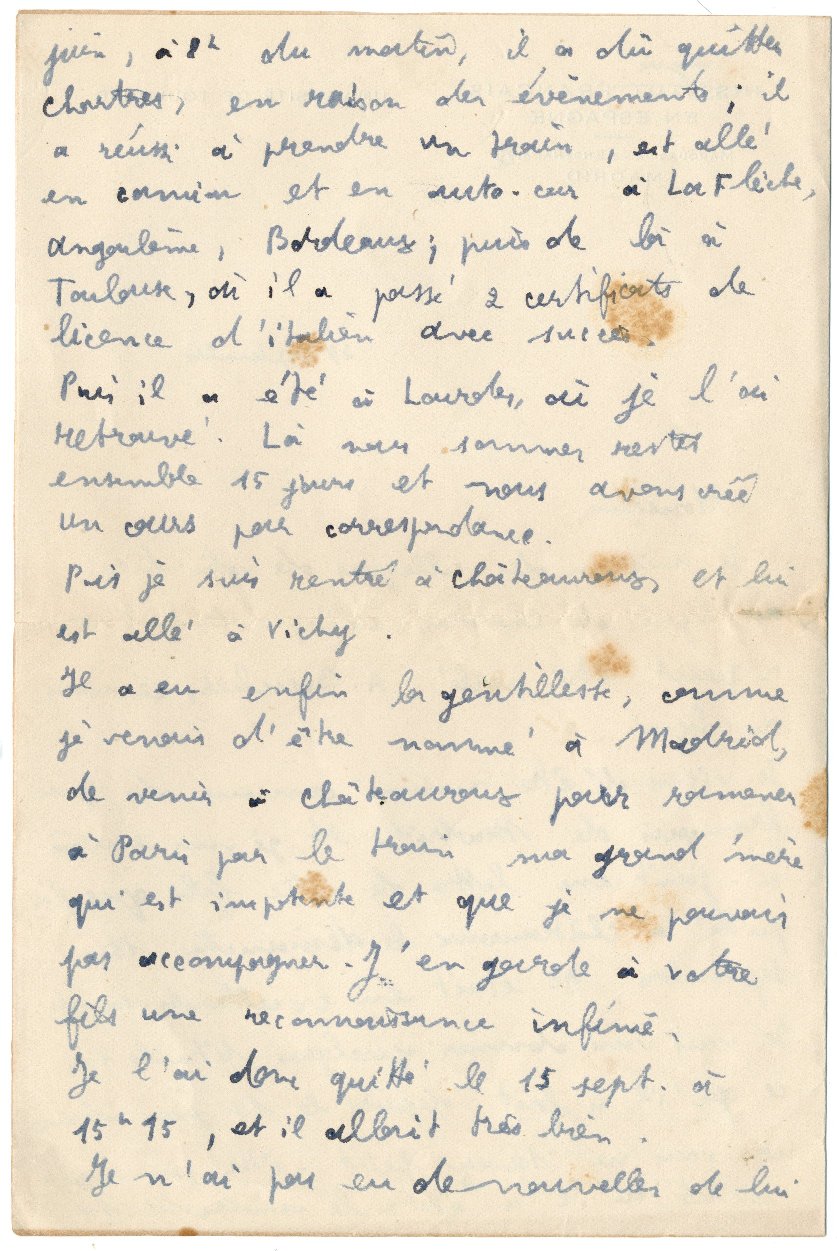 juin, à 8h du matin, il a dû quitter
Chartres, en raison des évènements; il
a réussi à prendre un train, est allé
en camion et en auto-car à La Flèche,
Angoulême, Bordeaux; puis de là à
Toulouse, où il a passé 2 certificats de
licence d'italien avec succès.
Puis il a été à Lourdes, où je l'ai
retrouvé. Là nous sommes restés
ensemble 15 jours et nous avons créé
un cours par correspondance.
Puis je suis rentré à Châteauroux, et lui
est allé à Vichy.
Il a eu enfin la gentillesse, comme
je venais d'être nommé à Madrid,
de venir à Châteauroux pour ramener
à Paris par le train ma grand'mère
qui est impotente et que je ne pouvais
pas accompagner. J'en garde à votre
fils une reconnaissance infinie.
Je l'ai donc quitté le 15 sept. à
15h15, et il allait très bien.
Je n'ai pas eu de nouvelles de lui